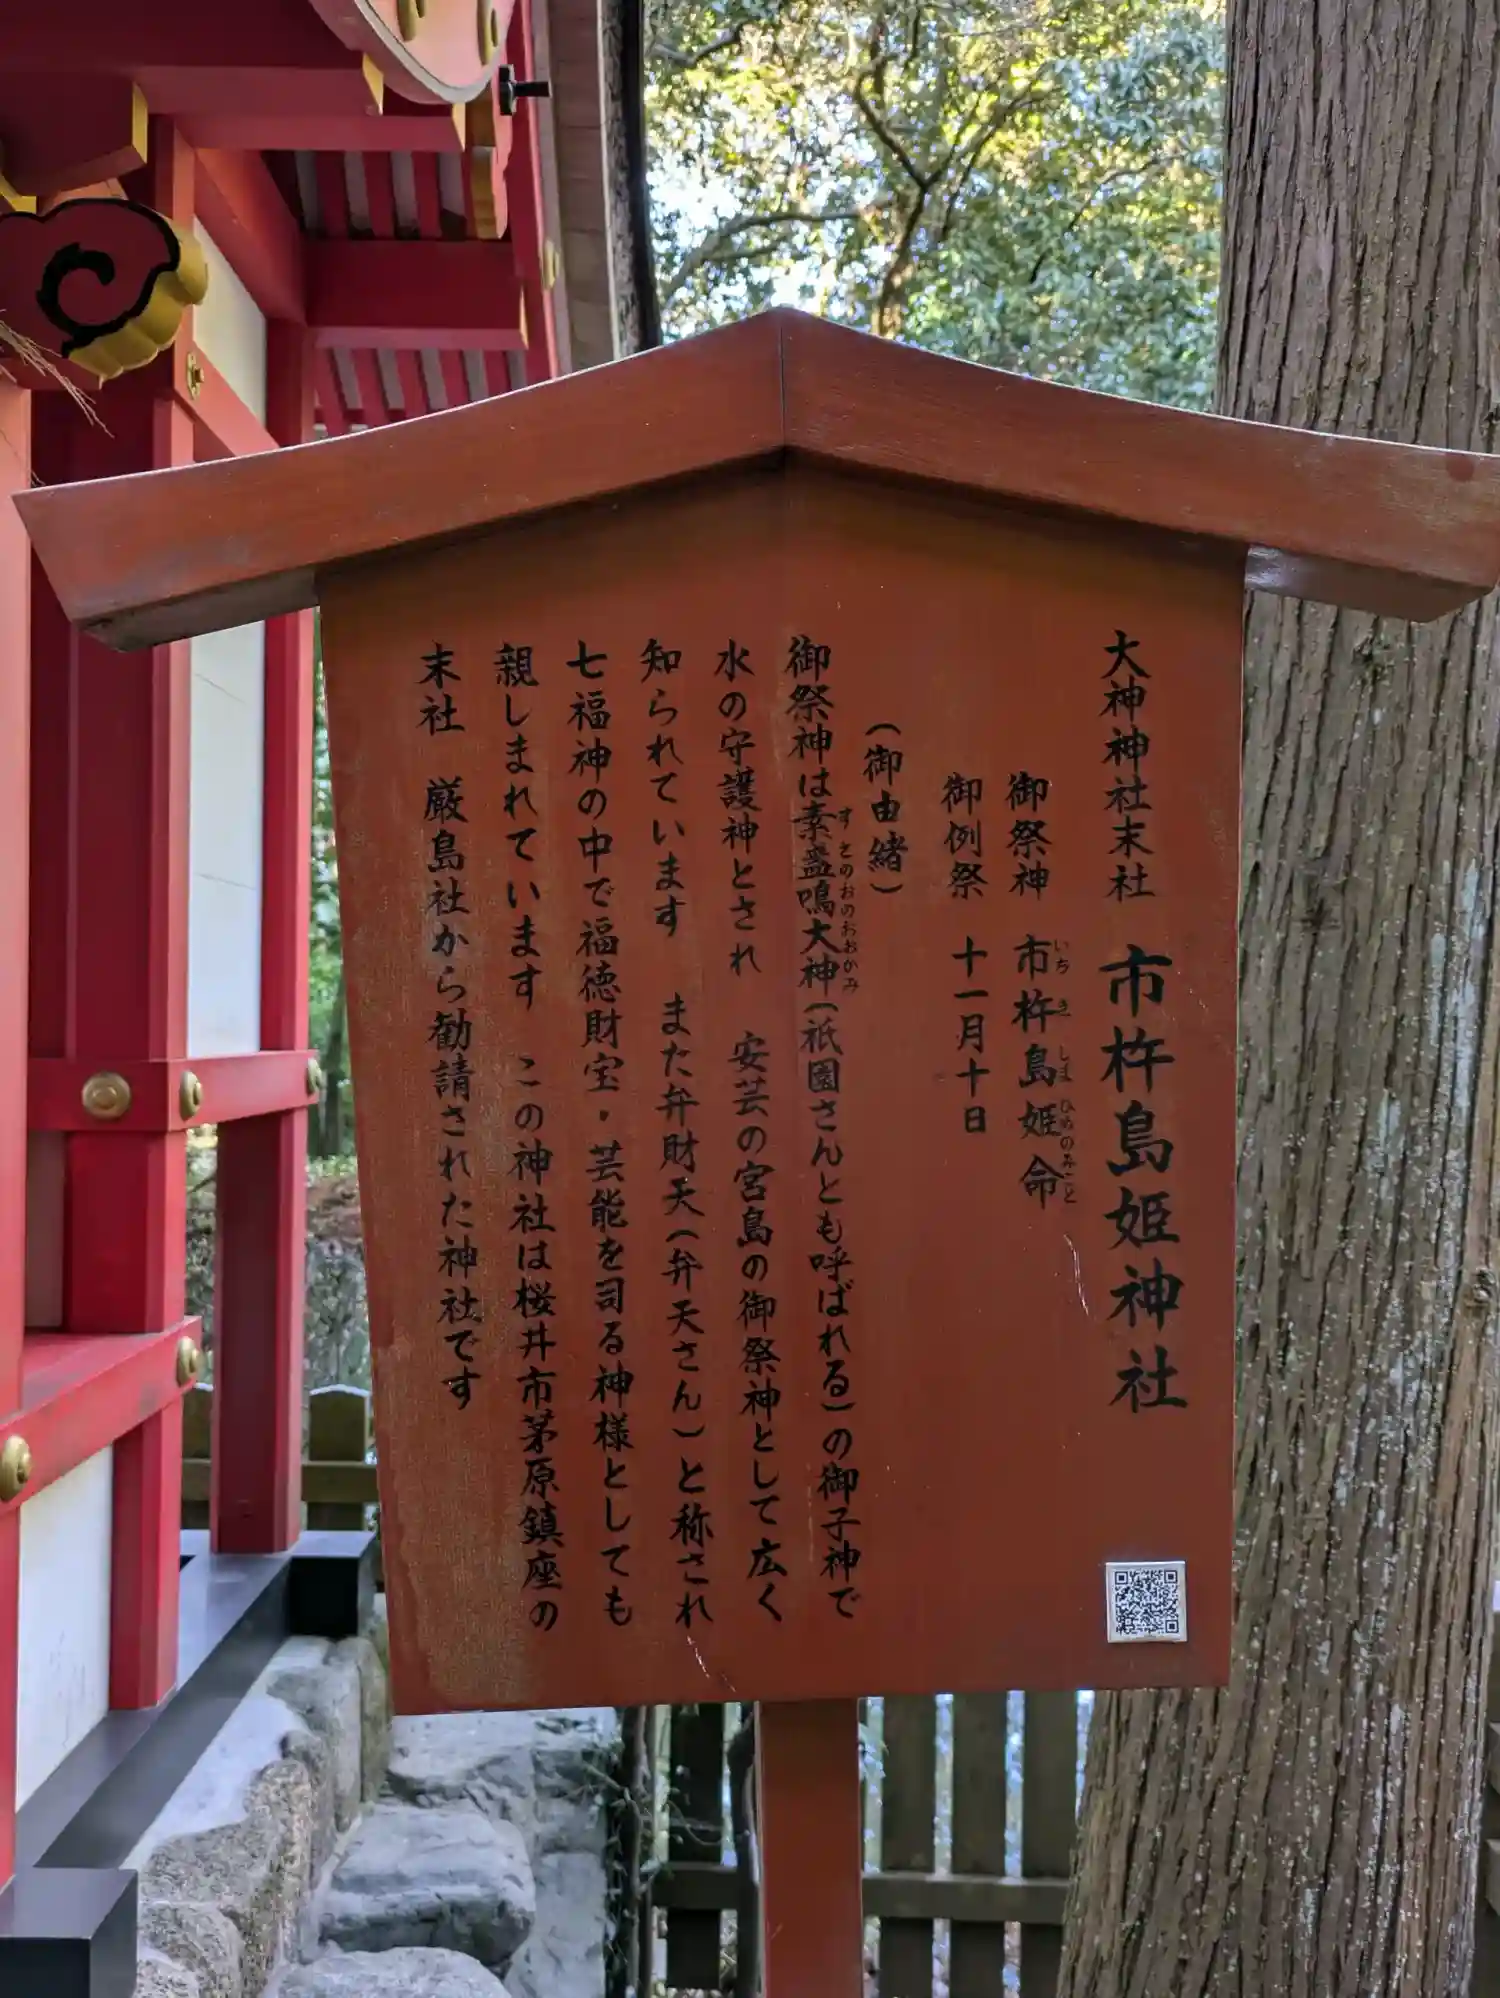 大神神社末社 市杵島姫神社
御祭神 市杵島姫命
いち き しま ひめのみこと
御例祭 十一月十日
(御由緒)
御祭神は素盞鳴大神(祇園さんとも呼ばれる)の御子神で
すさのおのおおかみ
水の守護神とされ 安芸の宮島の御祭神として広く
知られています また弁財天(弁天さん)と称され
七福神の中で福徳財宝・芸能を司る神様としても
親しまれています この神社は桜井市茅原鎮座の
末社 厳島社から勧請された神社です